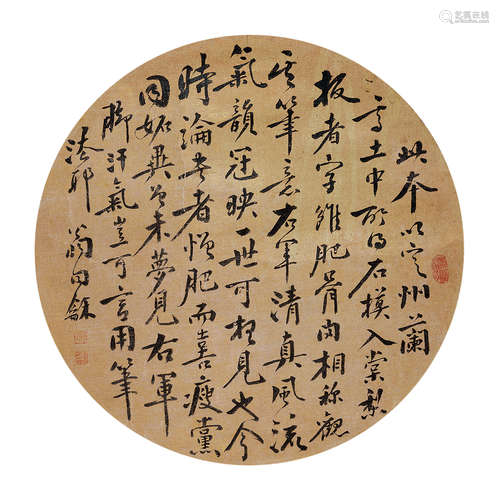 此本以定州蘭
亭土中所得石模入棠梨
板者字雖肥骨肉相称觀
其筆意右軍清真風流
氣韻冠映一世可想見也今
時論書者憎肥而喜瘦黨
同妬異曾未夢見右軍
腳汗氣豈可言用筆
法耶 翁同龢